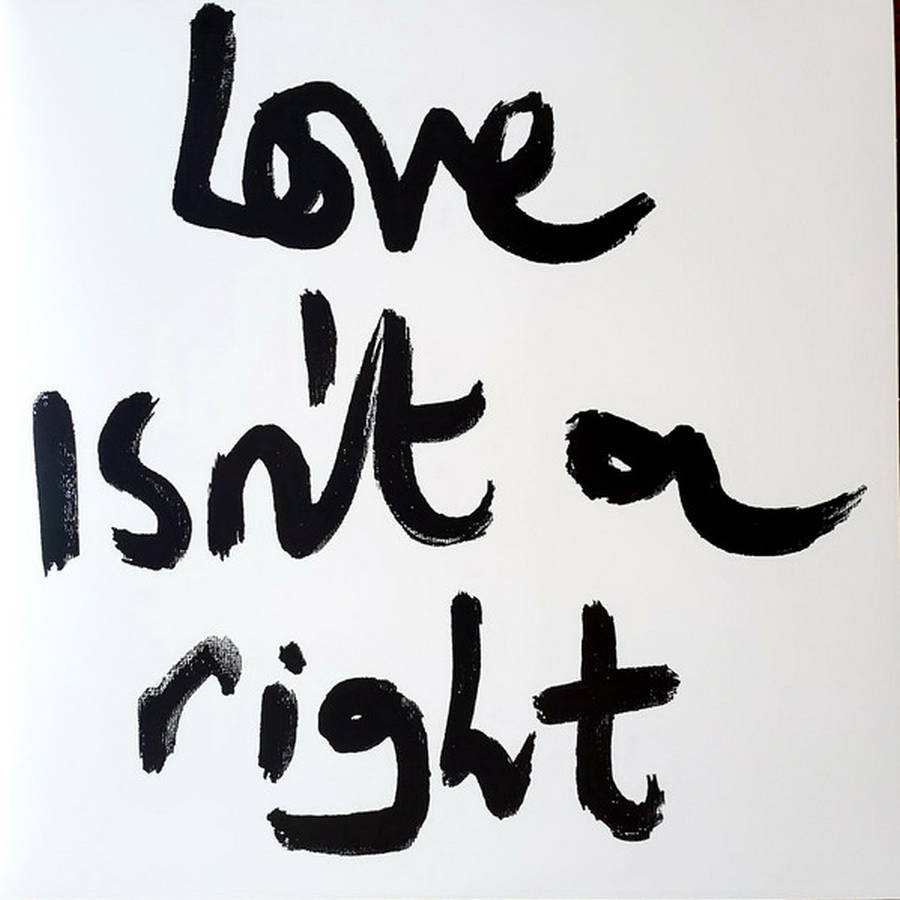 Love
Isn't a
right